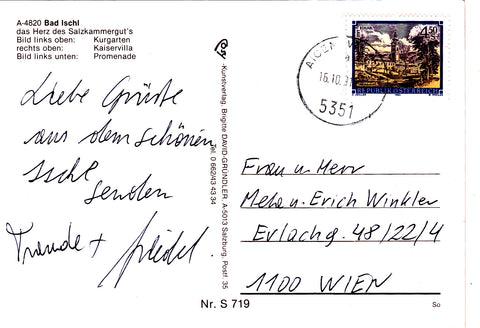 A-4820 Bad Ischl
das Herz des Salzkammergut's
Bild links oben: Kurgarten
rechts oben: Kaiservilla
Bild links unten: Promenade
Liebe Grüße
aus dem schönen
Ischl
senden
Kunstverlag Brigitte DAVID-GRÜNDLER, A-5013 Salzburg, Postf. 35
Tel. 0 662/43 43 34
Nr. S 719
16.10.
5351
REPUBLIK ÖSTERREICH
Frau u Herr
u. Erich Winkler
Erlachg. 48/22/4
1100 WIEN
So